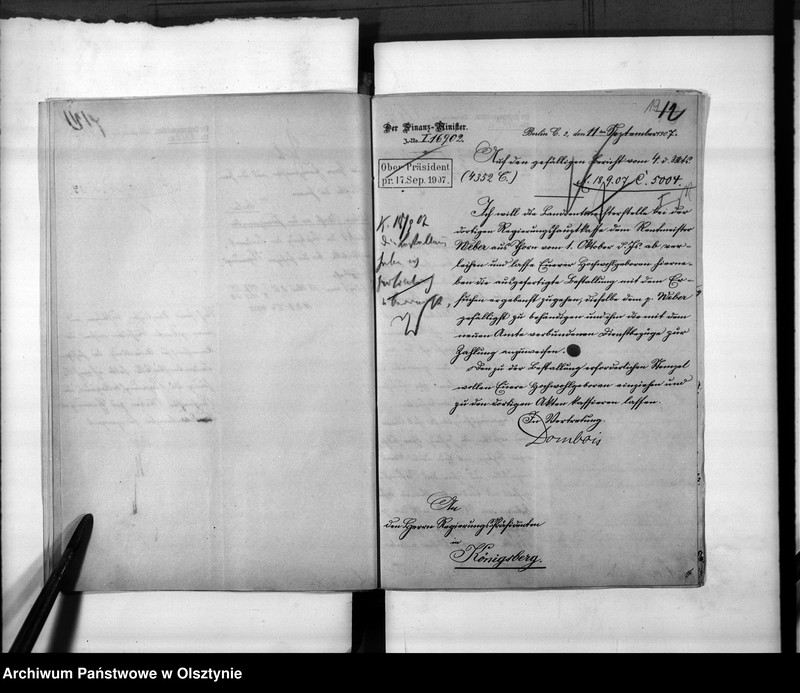 12
Der Finanz-Minister.
J.-No. I 16902.
Berlin C. 2, den 11ten September 1907.
Ober-Präsident
pr. 17. Sep. 1907.
Auf den gefälligen Bericht vom 4. d. Mts.
(4352 C.)
18.9.07 C. 5004.
K. 18/9 07
Die Bestallung
habe ich
Ich will die Landrentmeisterstelle bei der
dortigen Regierungshauptkasse dem Rentmeister
Weber aus Thorn vom 1. Oktober d. Js. ab ver-
leihen und lasse Euerer Hochwohlgeboren hierne-
ben die ausgefertigte Bestallung mit dem Er-
suchen ergebenst zugehen, dieselbe dem p. Weber
gefälligst zu behändigen und ihm die mit dem
neuen Amte verbundenen Dienstbezüge zur
Zahlung anzuweisen.
Den zu der Bestallung erforderlichen Stempel
wollen Euere Hochwohlgeboren einziehen und
zu den dortigen Akten kassieren lassen.
In Vertretung.
Dombois
An
den Herrn Regierungspräsidenten
in
Königsberg.
Archiwum Państwowe w Olsztynie